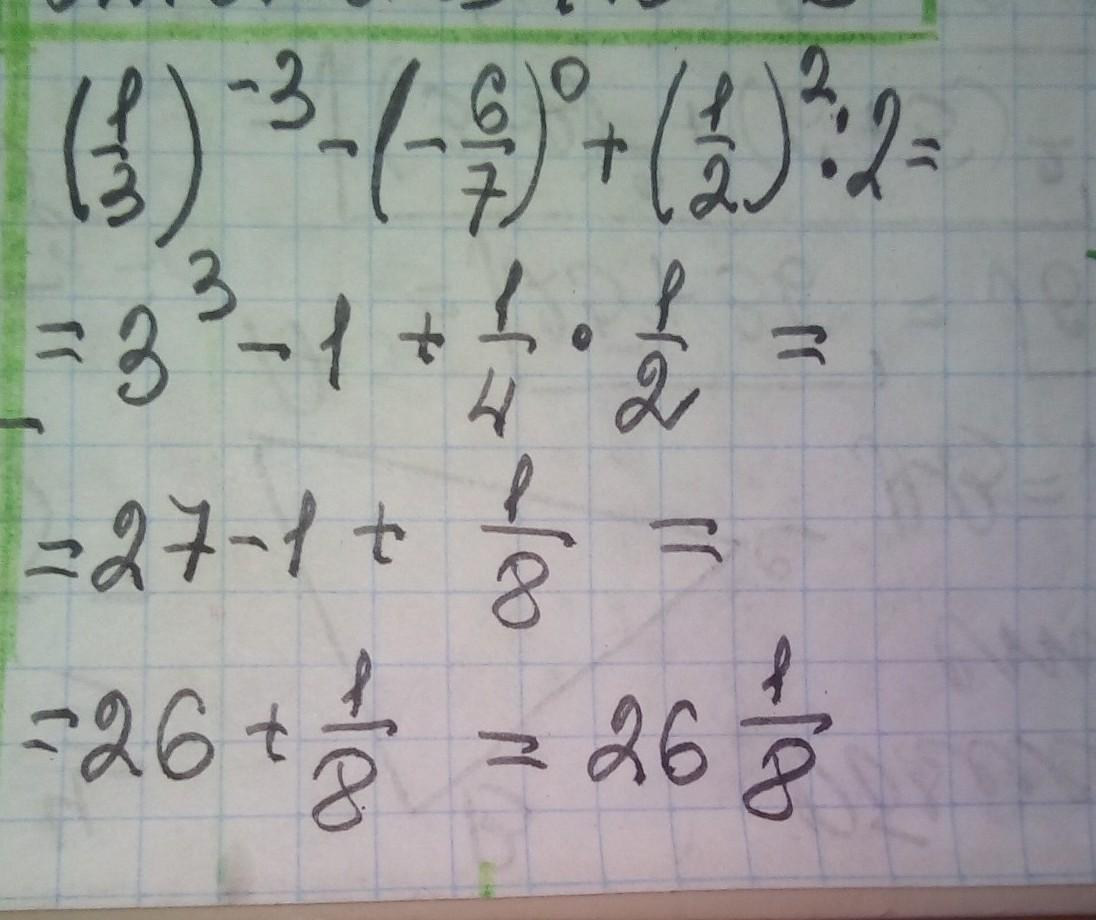 (1/3)^-3 - (-6/7)^0 + (1/2)^2 : 2 =
= 3^3 - 1 + 1/4 · 1/2 =
= 27 - 1 + 1/8 =
= 26 + 1/8 = 26 1/8